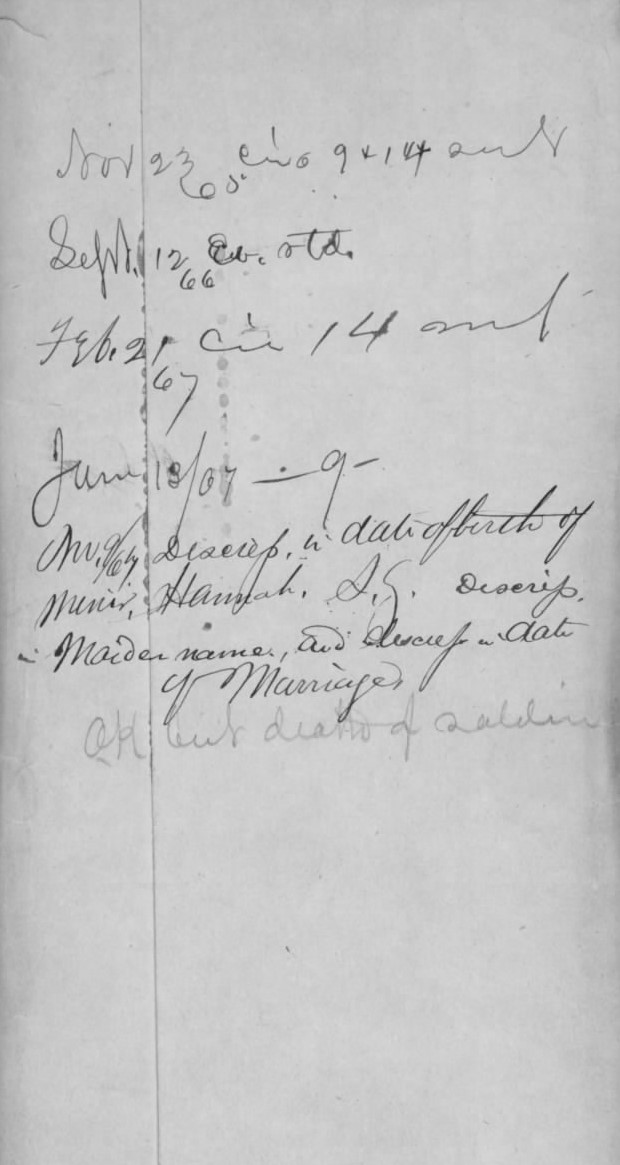 Nov 23 65 Cir 9 + 14 sent
Sept. 12 66 Ev. std.
Feb. 21 67 Cir 14 sent
June 13/67 — 9 —
Nov. 9/67 Discrep. in date of birth of
minor, Hannah. Discrep.
in Maiden name, and discrep in date
of Marriage
OK but death of soldier